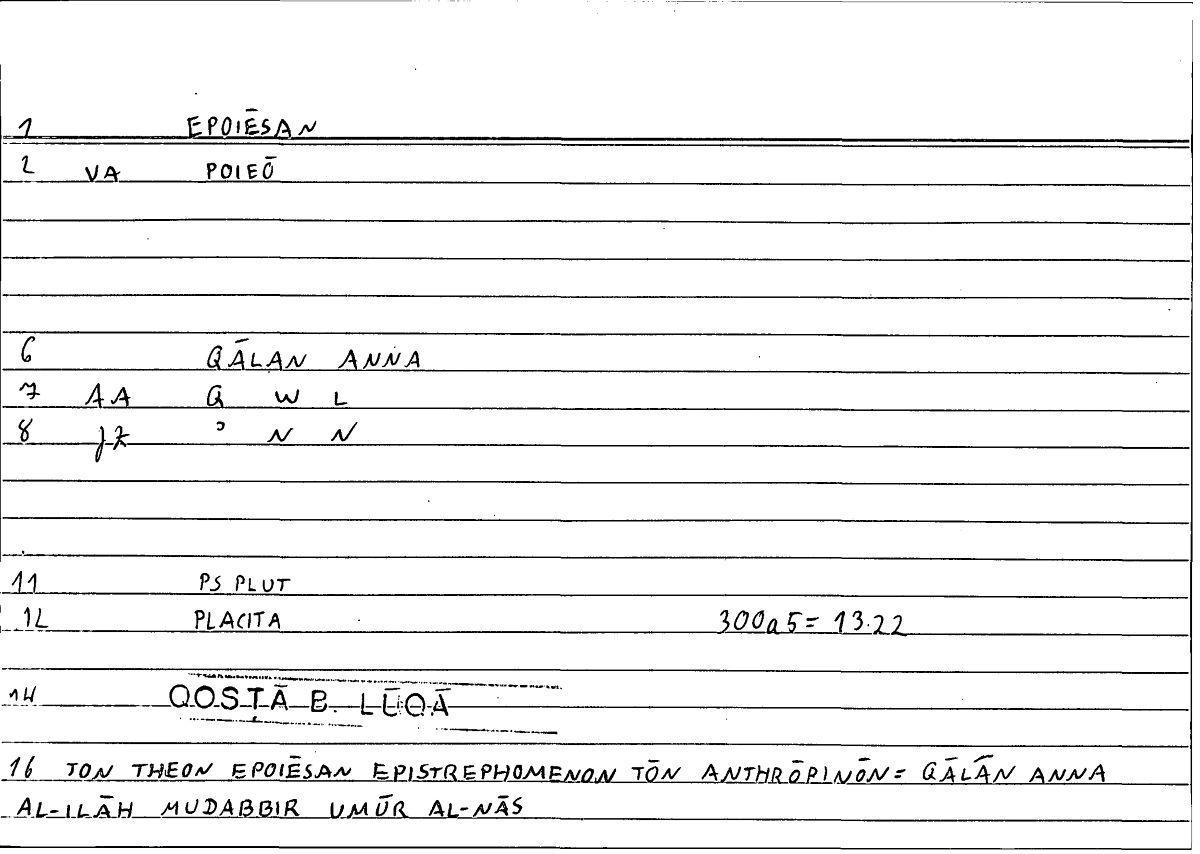 1 EPOIĒSAN
2 VA POIEŌ
6 QĀLAN ANNA
7 AA Q W L
8 JZ ʾ N N
11 PS PLUT
12 PLACITA 300a5 = 13.22
14 QOSṬĀ B. LŪQĀ
16 TON THEON EPOIĒSAN EPISTREPHOMENON TŌN ANTHRŌPINŌN = QĀLĀN ANNA
AL-ILĀH MUDABBIR UMŪR AL-NĀS